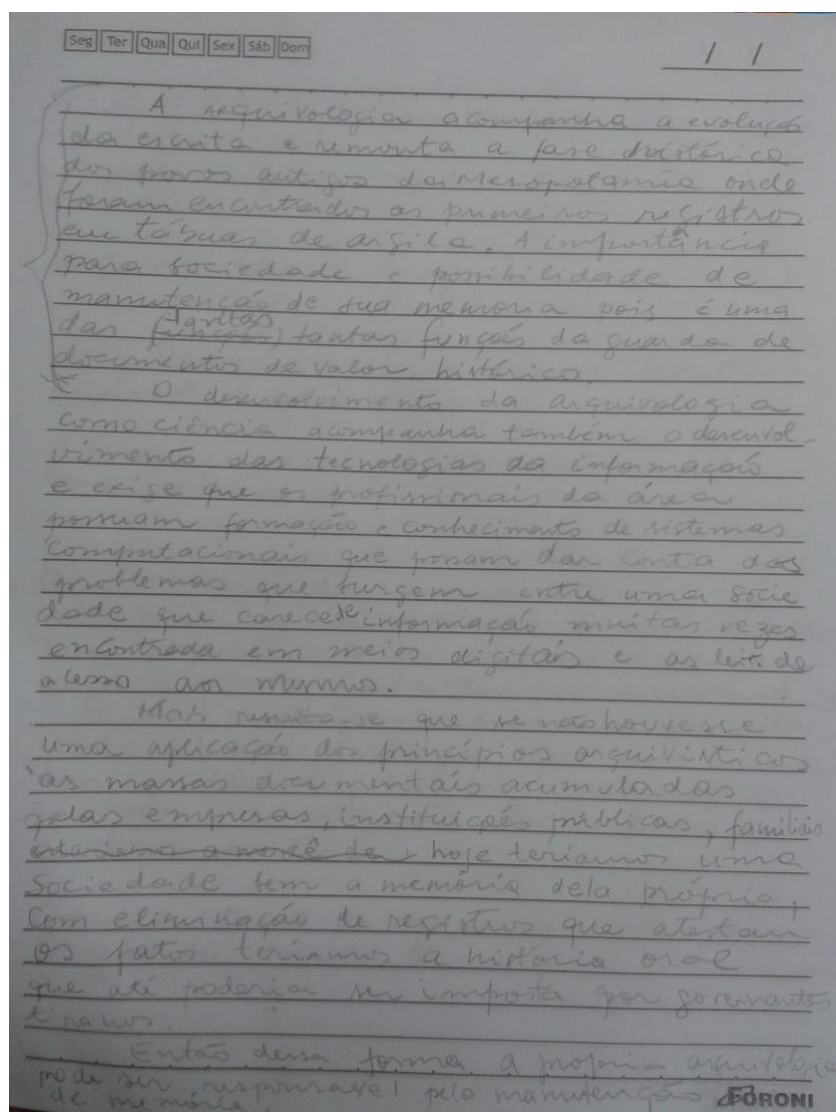 Seg Ter Qua Qui Sex Sáb Dom
/ /
A arquivologia acompanha a evolução
da escrita e remonta a fase histórica
dos povos antigos da Mesopolamia onde
foram encontrados os primeiros registros
em tábuas de argila. A importância
para sociedade e possibilidade de
manutenção de sua memoria pois é uma
das tantas funções da guarda de
documentos de valor histórico.
O desenvolvimento da arquivologia
como ciência acompanha também o desenvol-
vimento das tecnologias da informação
e exige que os profissionais da área
possuam formação e conhecimento de sistemas
computacionais que possam dar conta dos
problemas que surgem entre uma socie
dade que carece de informação muitas vezes
encontrada em meios digitais e as leis de
acesso aos mesmos.
Mas resalta-se que se não houvesse
uma aplicação dos princípios arquivísticos
às massas documentais acumuladas
pelas empresas, instituições públicas, famílias
estariamos a mercê de hoje teríamos uma
sociedade sem a memória dela própria,
com eliminação de registros que atestam
os fatos teríamos a história oral
que até poderia ser imposta por governantes
tiranos.
Então dessa forma a propria arquivologia
pode ser responsavel pela manutenção
de memória.
FORONI